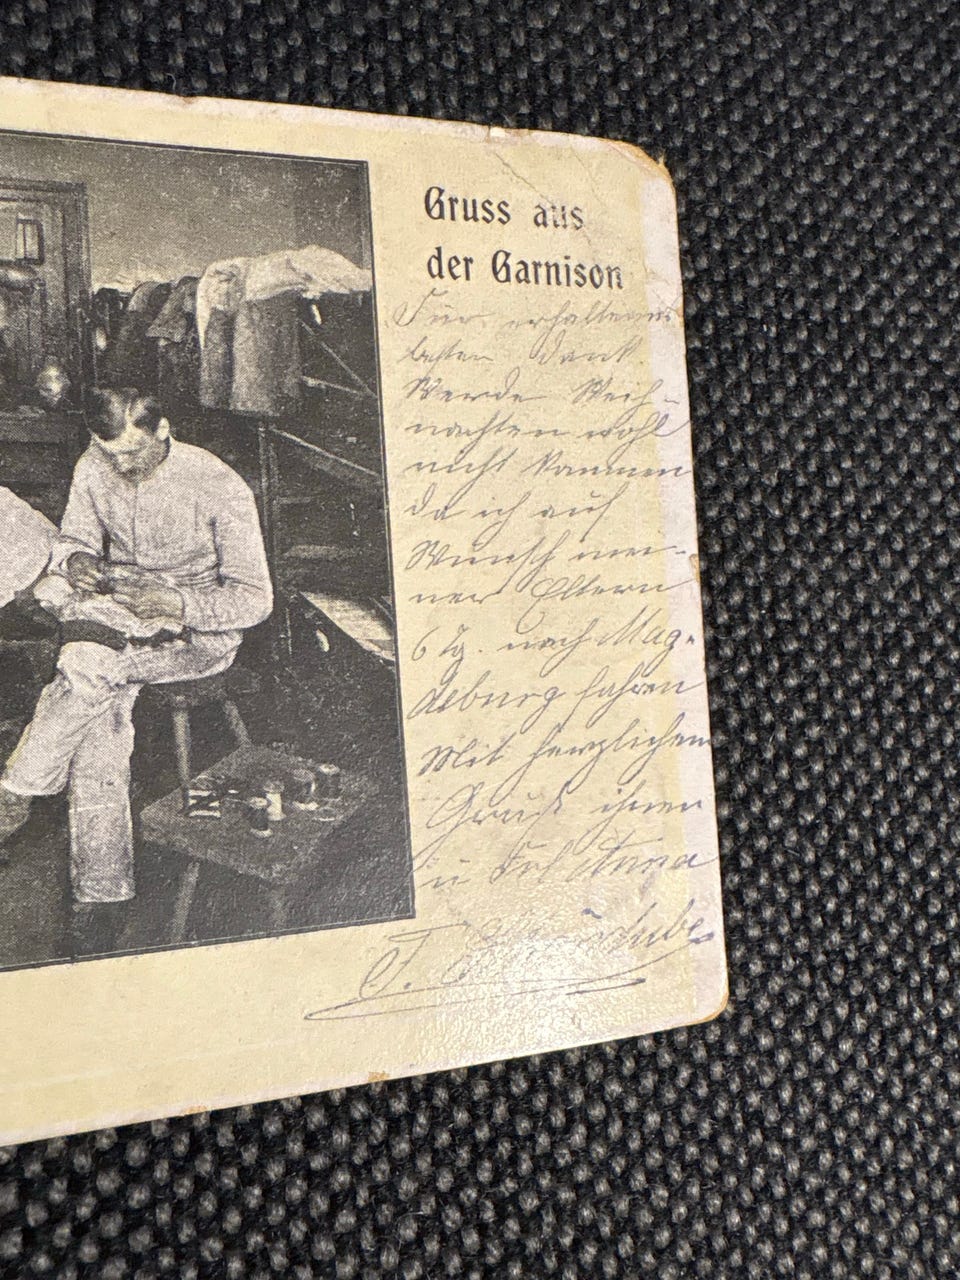 Gruss aus
der Garnison
Für erhaltenes
besten Dank.
Werde Weih-
nachten wohl
nicht kommen
da ich auf
Wunsch mei-
ner Eltern
6 Tg. nach Mag-
deburg fahren
Mit herzlichem
Gruß ihnen
u Frl
F.